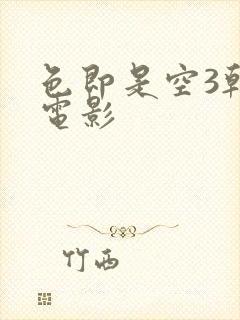 色即是空3韩
電影
竹西